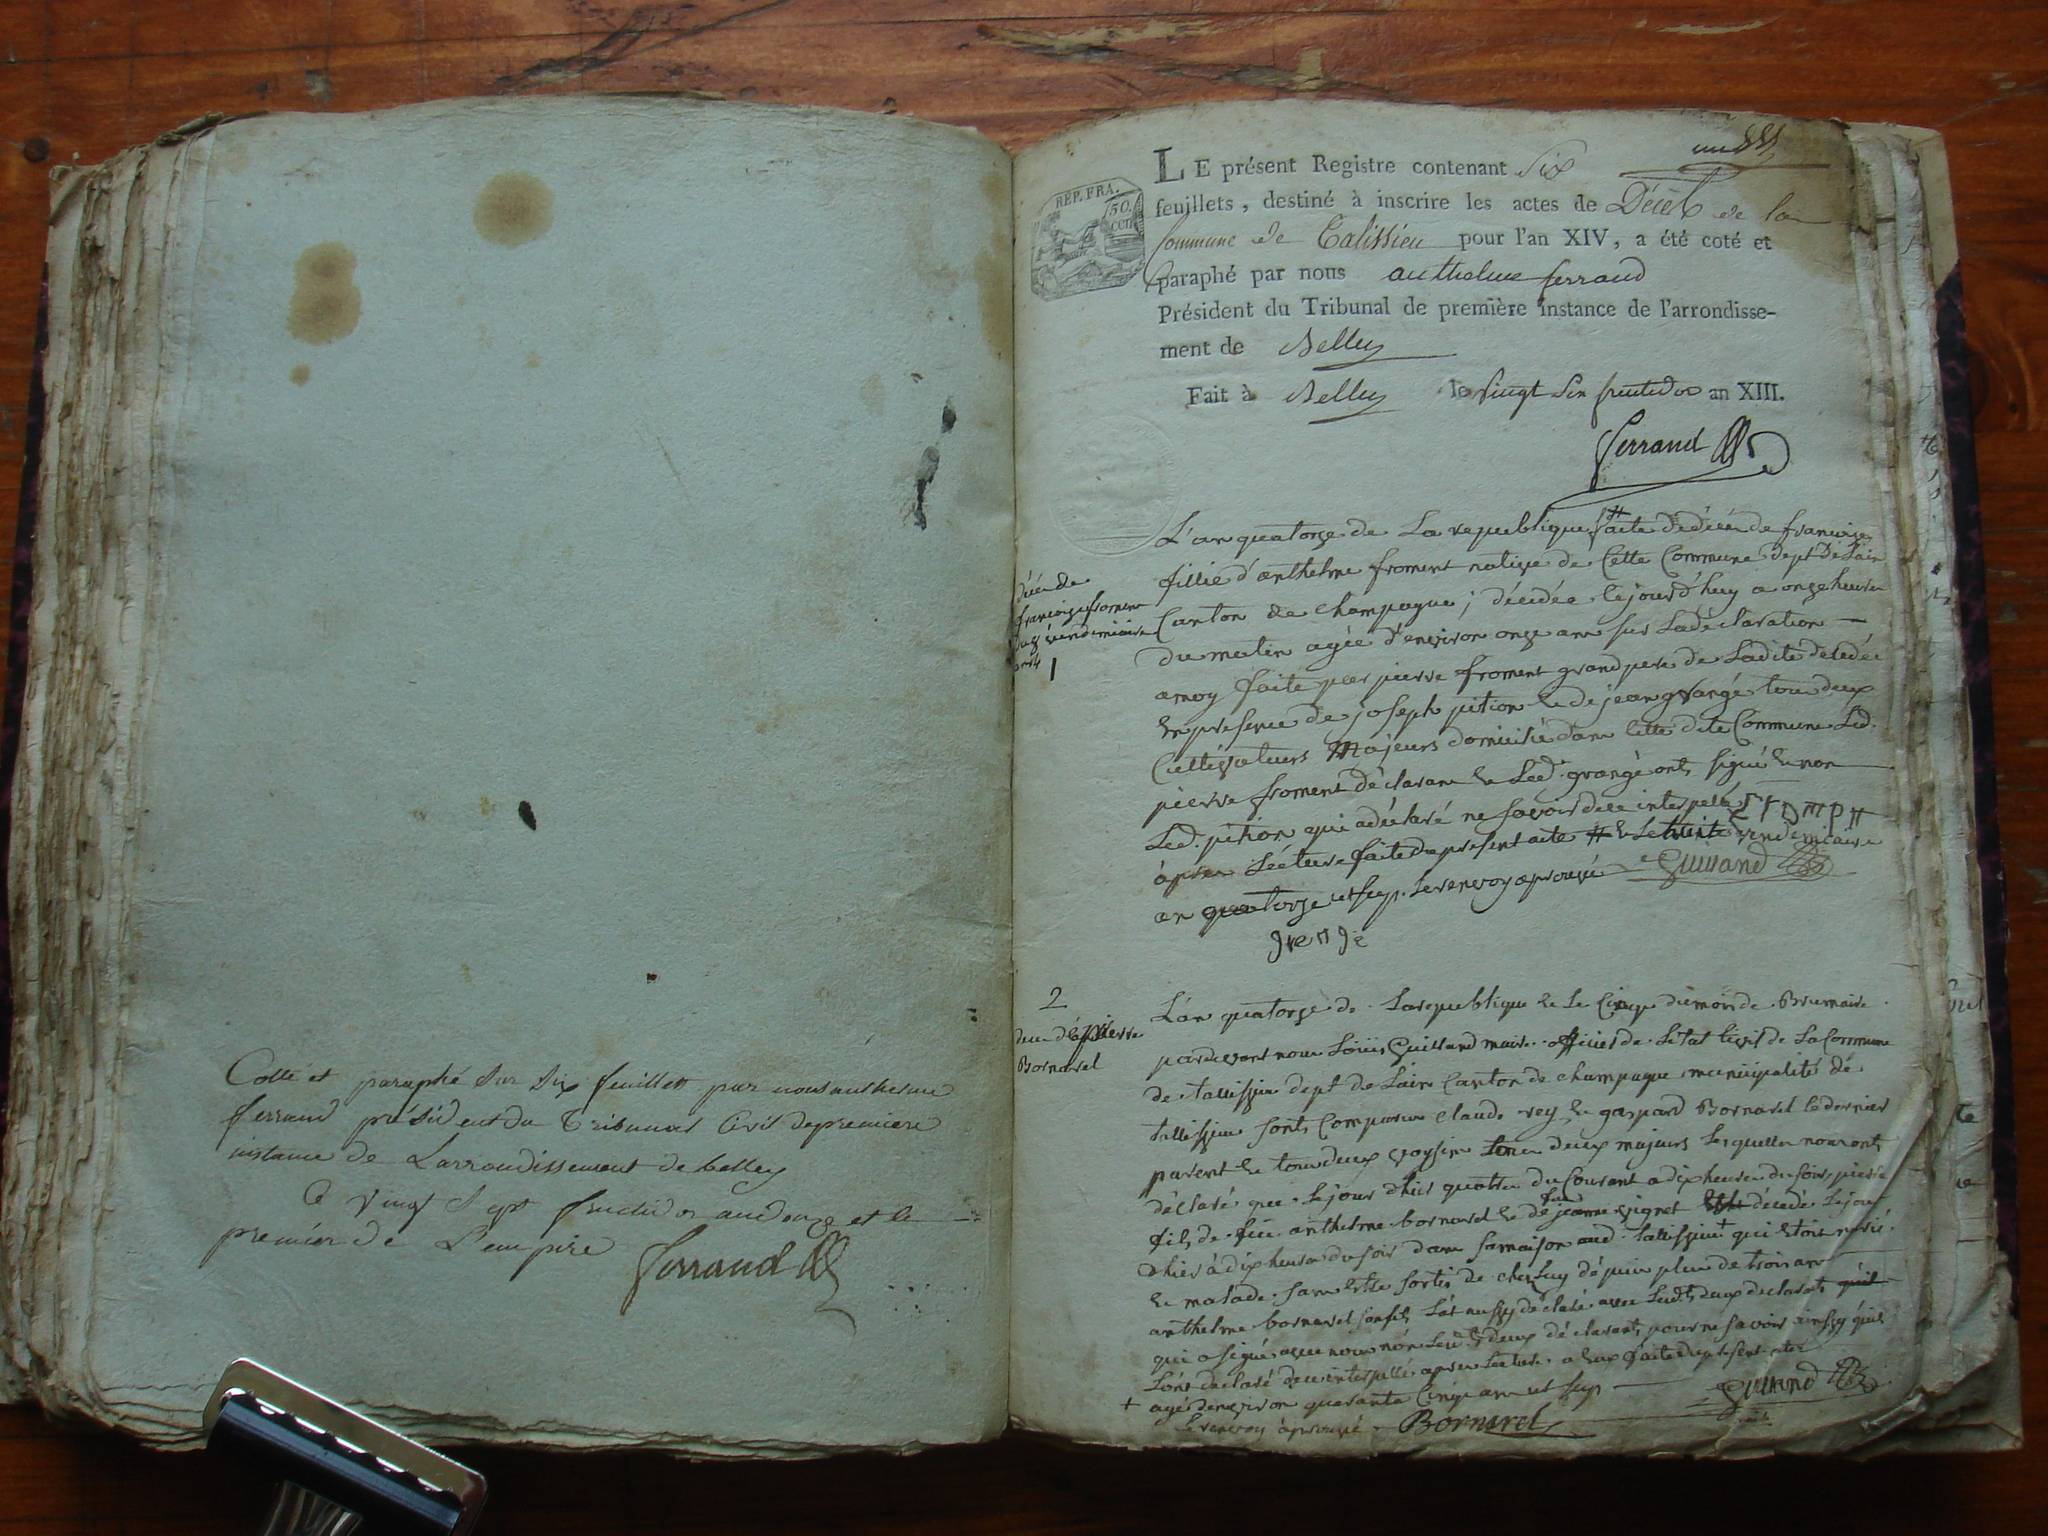 Cotté et paraphé sur six feuillets par nous anthelme
ferrand président du Tribunal Civil de premiere
instance de Larrondissement de belley
Ce vingt sept fructidor an douze et le
premier de L'empire
Ferrand
REP. FRA.
50 cen
LE présent Registre contenant six
feuillets, destiné à inscrire les actes de Décès de la
Commune de Talissieu pour l'an XIV, a été coté et
paraphé par nous anthelme ferrand
Président du Tribunal de première instance de l'arrondisse-
ment de Belley
Fait à Belley le vingt six fructidor an XIII.
Ferrand
décès de
françoise froment
vendemiaire
an 14
1
L'an quatorze de La republique # acte de décès de françoise
fillie d'anthelme froment native de Cette Commune dept De Lain
Canton de champagne; décédée lejourd'huy a onze heures
du matin agée d'environ onze ans sur La déclaration
a moy faite par pierre froment grand pere de Ladite décédée
En presence de joseph pition & de jean grangé tous deux
Cultivateurs Majeurs domicilié dans Cette dite Commune Led.
pierre froment déclarant & Led. grangé ont signé & non
Led. pition qui a déclaré ne savoir de ce interpellé
après Lecture faite du present acte # & le huit vendemiaire
an quatorze ut sup. Le renvoy aprouvé Guirand
grangé
2
décès de pierre
Bornarel
L'an quatorze de La republique & le Cinq du mois de Brumaire
pardevant nous Loüis Guirand maire officier de Letat Civil de La Commune
de tallissieu dept de Lain Canton de champagne municipalité de
tallissieu sont Comparus claude rey & gaspard Bornarel le dernier
parent & tous deux voysin tous deux majeurs Lesquels nous ont
déclaré que le jour d'hier quatre du Courant a dix heures du soir pierre
fils de feu anthelme bornarel & de feue jeanne vignet décédé Le jour
d'hier à dix heures du soir dans sa maison aud. tallissieu + qui etoit marié
& malade sans Etre sortis de chez luy dépuis plus de trois ans
anthelme bornarel son fils L'at aussy déclaré avec Lesdts deux declarants
qui a signé avec nous non Lesdts deux déclarants pour ne savoir ainsy qu'ils
L'ont declaré de ce interpellé après Lecture a Eux faite du present acte
+ agé d'environ quarante Cinq ans ut sup Guirand
Le renvoy àprouvé Bornarel